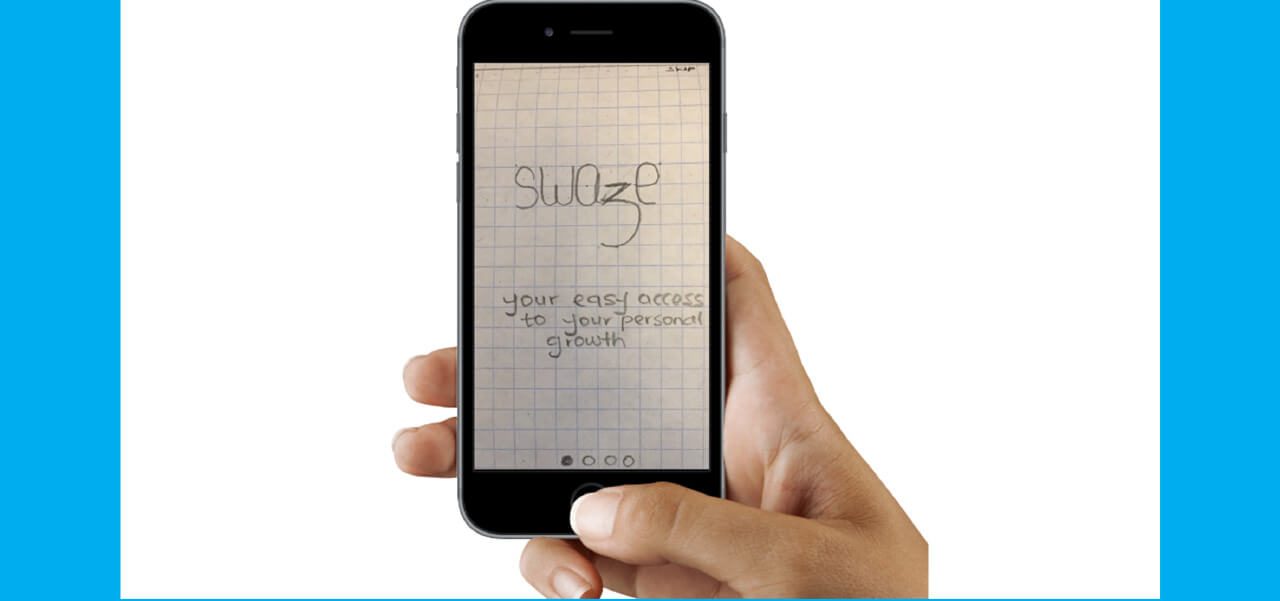 skip
swaze
your easy access
to your personal
growth